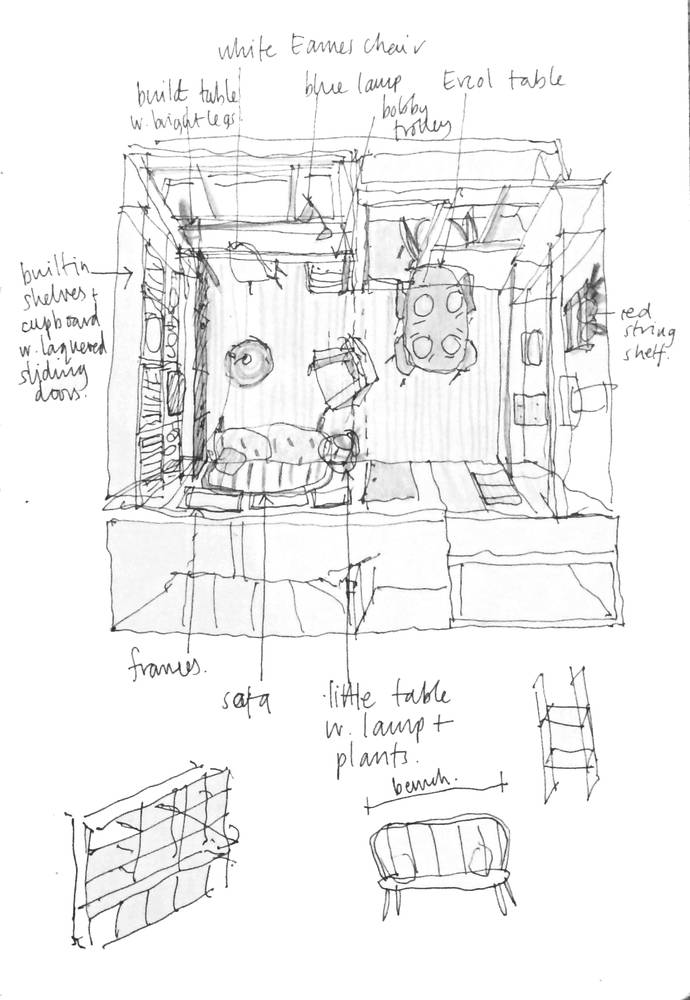 white Eames chair
built table
w. bright legs
blue lamp
bobby
trolley
Ercol table
builtin
shelves +
cupboard
w. laquered
sliding
doors.
red
string
shelf.
frames.
sofa
little table
w. lamp +
plants.
bench.